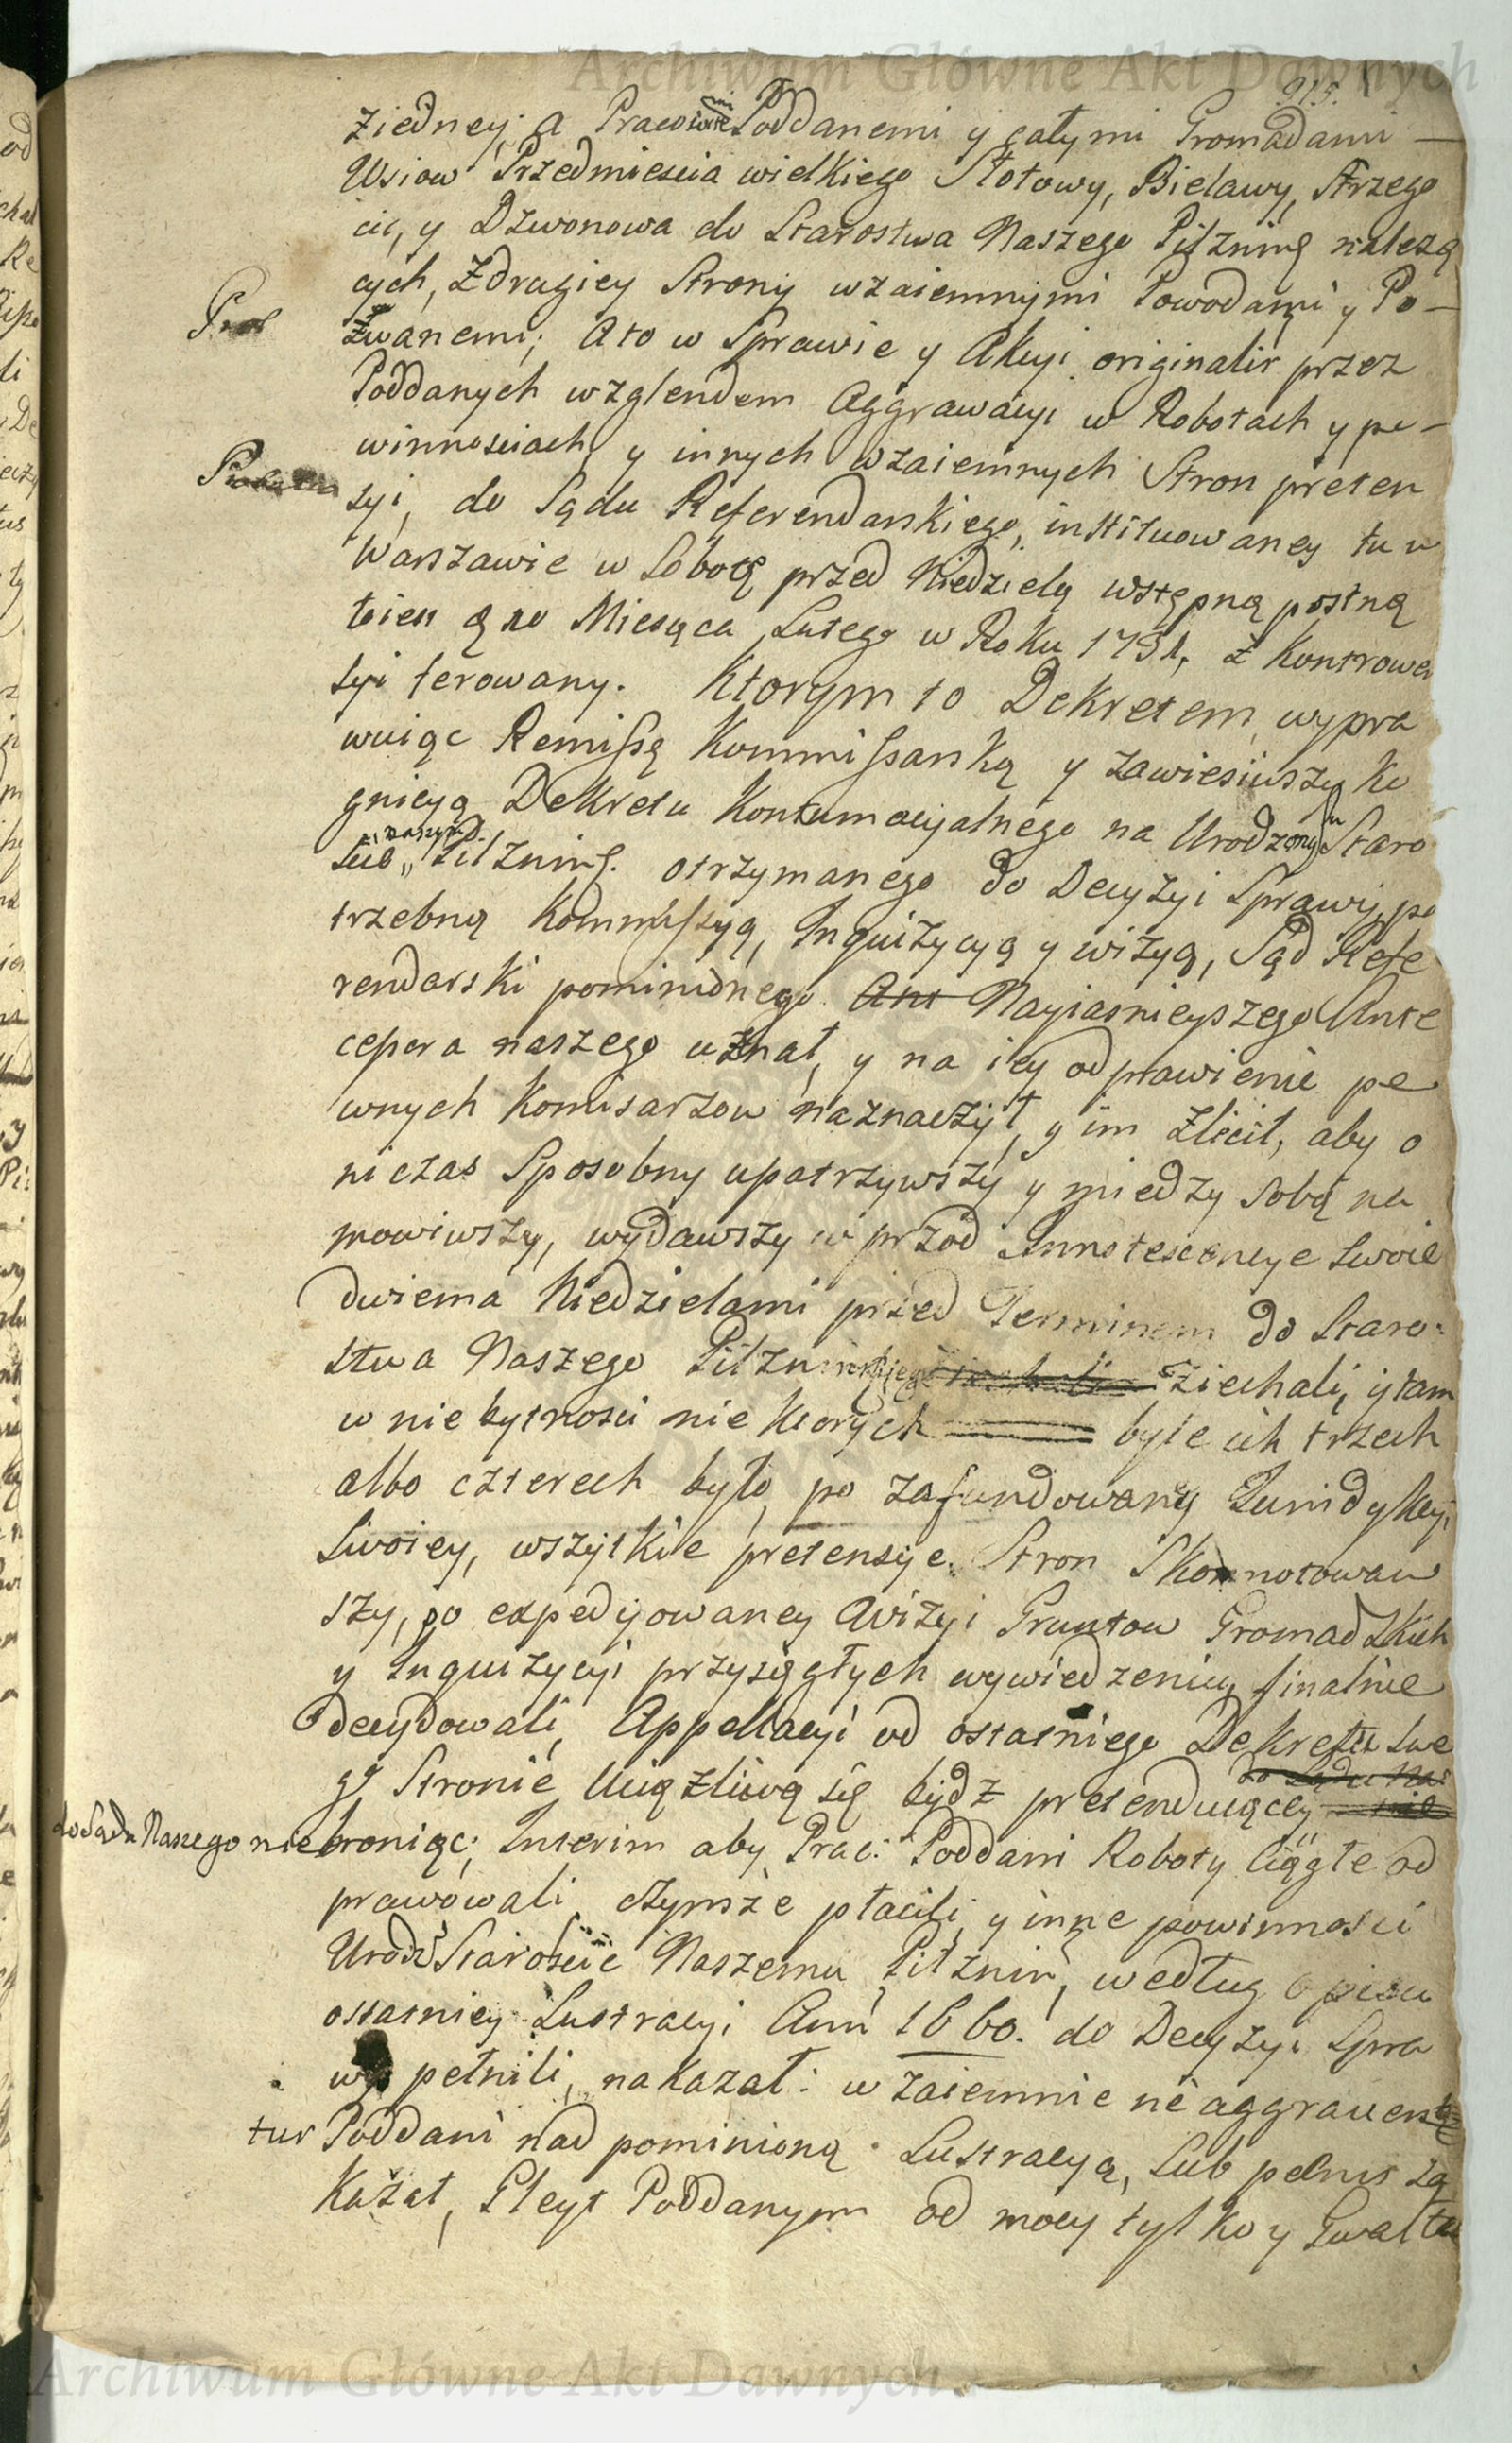 Archiwum Główne Akt Dawnych
915.
ziedney, a Pracowitemi Poddanemi y całymi Gromadami —
Wsiow Przedmiescia wielkiego Słotowy, Bielawy, Strzego
cic, y Dzwonowa do Starostwa Naszego Pilznińs należą
cych, Zdrugiey Strony wzaiemnymi Powodami y Po—
zwanemi; Ato w Sprawie y Akcyi originalir przez
Poddanych wzglendem Aggrawacyi w Robotach y po—
winnosciach, y innych wzaiemnych Stron preten
syi, do Sądu Referendarskiego, instituowaney tu w
Warszawie w Sobotę przed Niedzielą wstępną postną
Miesąca Lutego w Roku 1731, z Kontrower
syi ferowany. Ktorym to Dekretem wypra
wuiąc Remissę Kommissarską y zawiesiwszy ko
gnicyą Dekretu Kontumacyalnego na Urodzonym Staro
scie naszym Pilznins. otrzymanego do Decyzyi Sprawy, po
trzebną Kommissyą, Inquizycyą y wizyą, Sąd Refe
rendarski pominionego Ant Nayiasnieyszego Ante
cesora naszego uznał, y na iey odprawienie pe
wnych Komisarzow naznaczył, y im zlecił, aby o
ni czas Sposobny upatrzywszy y między sobą na
mowiwszy, wydawszy w przod Innotescencye swoie
dwiema Niedzielami przed Terminem do Staro=
stwa Naszego Pilznińskiego ziechali, y tam
w niebytnosci nie Ktorych byle ich trzech
albo czterech było, po zafundowaney Jurisdykcyi
Swoiey, wszytkie pretensye Stron Skonnotowaw
szy, po expedyowaney Wizyi Gruntow Gromadzkich
y Inquizycyi przysięgłych wywiedzeniu, finalnie
decydowali, Appellacyi od ostatniego Dekretu swe
go Stronie Uciążliwą się bydz pretenduiącey do Sądu Nas nie
do Sądu Naszego niebroniąc; Interim aby Prac: Poddani Roboty Ciągłe od
prawowali, czynsze płacili, y inne powinnosci
Urodz Staroscie Naszemu Pilznińs, według opisu
ostatniey Lustracyi Anni 1660. do Decyzyi Spra
wy pełnili, nakazał: wzaiemnie ne aggraven
tur Poddani nad pominioną Lustracyą, sub pœnis za
Kazał, Gleyt Poddanym od mocy tylko y Gwałtu
Archiwum Główne Akt Dawnych